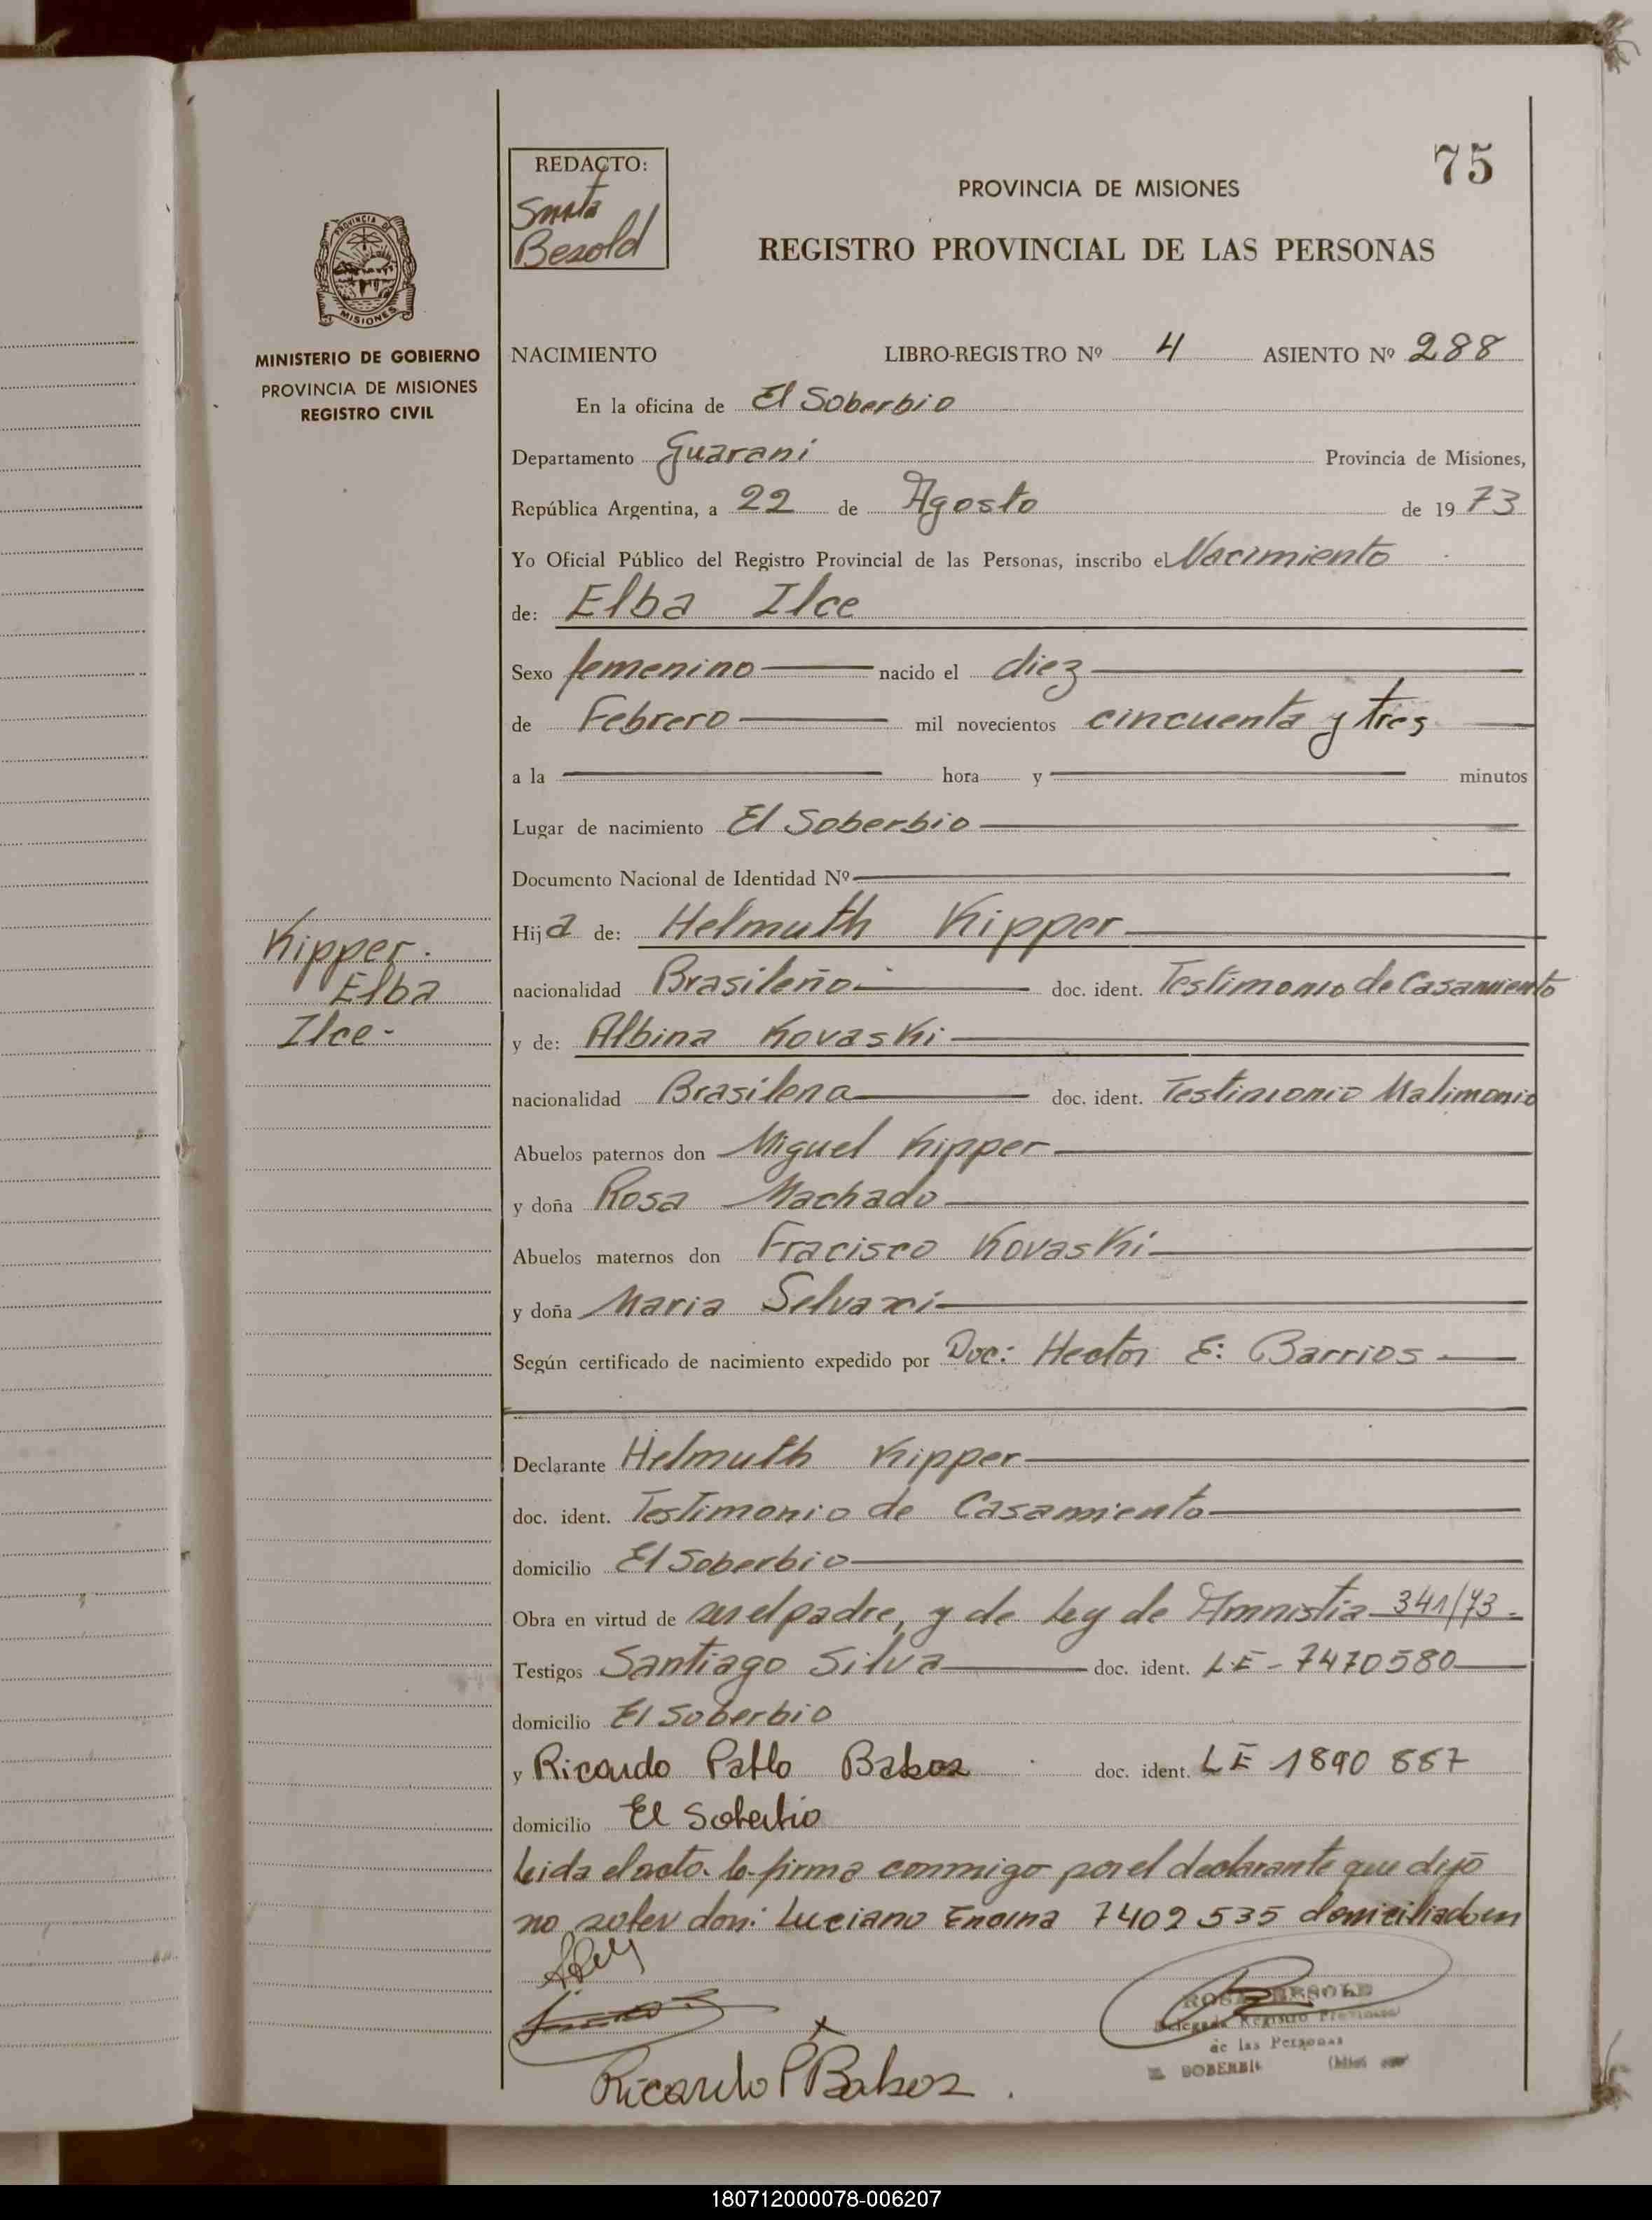 75
REDACTO:
Besold
PROVINCIA DE MISIONES
REGISTRO PROVINCIAL DE LAS PERSONAS
PROVINCIA DE
MISIONES
MINISTERIO DE GOBIERNO
PROVINCIA DE MISIONES
REGISTRO CIVIL
NACIMIENTO LIBRO-REGISTRO Nº 4 ASIENTO Nº 288
En la oficina de El Soberbio
Departamento Guarani Provincia de Misiones,
República Argentina, a 22 de Agosto de 1973
Yo Oficial Público del Registro Provincial de las Personas, inscribo el Nacimiento
de: Elba Ilce
Sexo femenino nacido el diez
de Febrero mil novecientos cincuenta y tres
a la hora y minutos
Lugar de nacimiento El Soberbio
Documento Nacional de Identidad Nº
Kipper.
Elba
Ilce-
Hija de: Helmuth Kipper
nacionalidad Brasileño doc. ident. Testimonio de Casamiento
y de: Albina Kovaski
nacionalidad Brasilena doc. ident. Testimonio Matimonio
Abuelos paternos don Miguel Kipper
y doña Rosa Machado
Abuelos maternos don Fracisco Kovaski
y doña Maria
Según certificado de nacimiento expedido por Doc: Hector E: Barrios
Declarante Helmuth Kipper
doc. ident. Testimonio de Casamiento
domicilio El Soberbio
Obra en virtud de ser el padre, y de Ley de Amnistia 341/73
Testigos Santiago Silva doc. ident. LE-7470580
domicilio El Soberbio
y Ricardo Pablo Baboz doc. ident. LE 1890 887
domicilio El Soberbio
Leida el acta la firma conmigo por el declarante que dijo
no saber don: Luciano Encina 7402535 domiciliado en
ROSA BESOLD
Delegada Registro Provincial
de las Personas
SOBERBIO
Ricardo P Baboz.
180712000078-006207